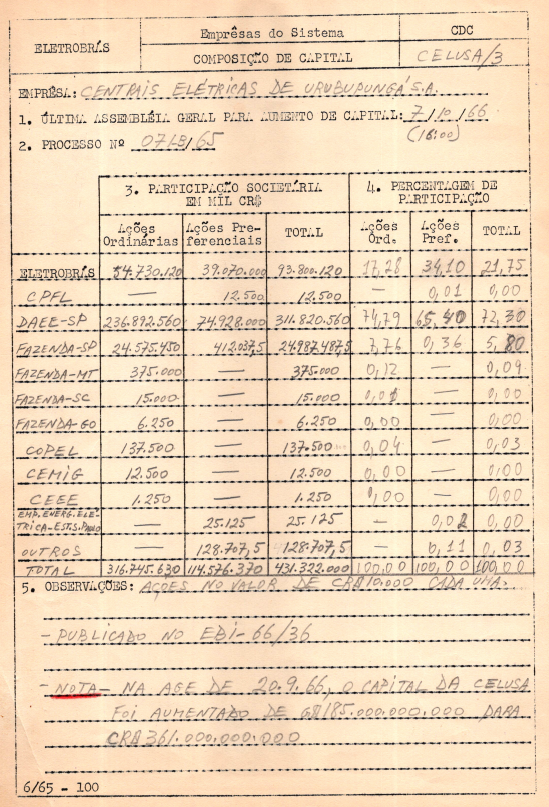 ELETROBRÁS
Emprêsas do Sistema
CDC
COMPOSIÇÃO DE CAPITAL
CELUSA/3
EMPRÊSA: CENTRAIS ELÉTRICAS DE URUBUPUNGÁ S.A.
1. ÚLTIMA ASSEMBLÉIA GERAL PARA AUMENTO DE CAPITAL: 7/10/66
(16:00)
2. PROCESSO Nº /65
3. PARTICIPAÇÃO SOCIETÁRIA EM MIL CR$
4. PERCENTAGEM DE PARTICIPAÇÃO
Ações Ordinárias Ações Preferenciais TOTAL Ações Ord. Ações Pref. TOTAL
ELETROBRÁS 54.730.120 39.070.000 93.800.120 17,28 34,10 21,75
CPFL — 12.500 12.500 — 0,01 0,00
DAEE-SP 236.892.560 74.928.000 311.820.560 74,79 65,40 72,30
FAZENDA-SP 24.575.450 412.037,5 24.987.487,5 7,76 0,36 5,80
FAZENDA-MT 375.000 — 375.000 0,12 — 0,09
FAZENDA-SC 15.000 — 15.000 — 0,00
FAZENDA-GO 6.250 — 6.250 0,00 — 0,00
COPEL 137.500 — 137.500 0,04 — 0,03
CEMIG 12.500 — 12.500 0,00 — 0,00
CEEE 1.250 — 1.250 0,00 — 0,00
EMP. ENERG. ELÉ-
TRICA-EST.S.PAULO — 25.125 25.125 — 0,02 0,00
OUTROS — 128.707,5 128.707,5 — 0,11 0,03
TOTAL 316.745.630 114.576.370 431.322.000 100,00 100,00 100,00
5. OBSERVAÇÕES: AÇÕES NO VALOR DE CR$10.000 CADA UMA.
- PUBLICADO NO EBI-66/36
- NOTA - NA AGE DE 20.9.66, O CAPITAL DA CELUSA
FOI AUMENTADO DE CR$185.000.000.000 PARA
CR$361.000.000.000
6/65 - 100